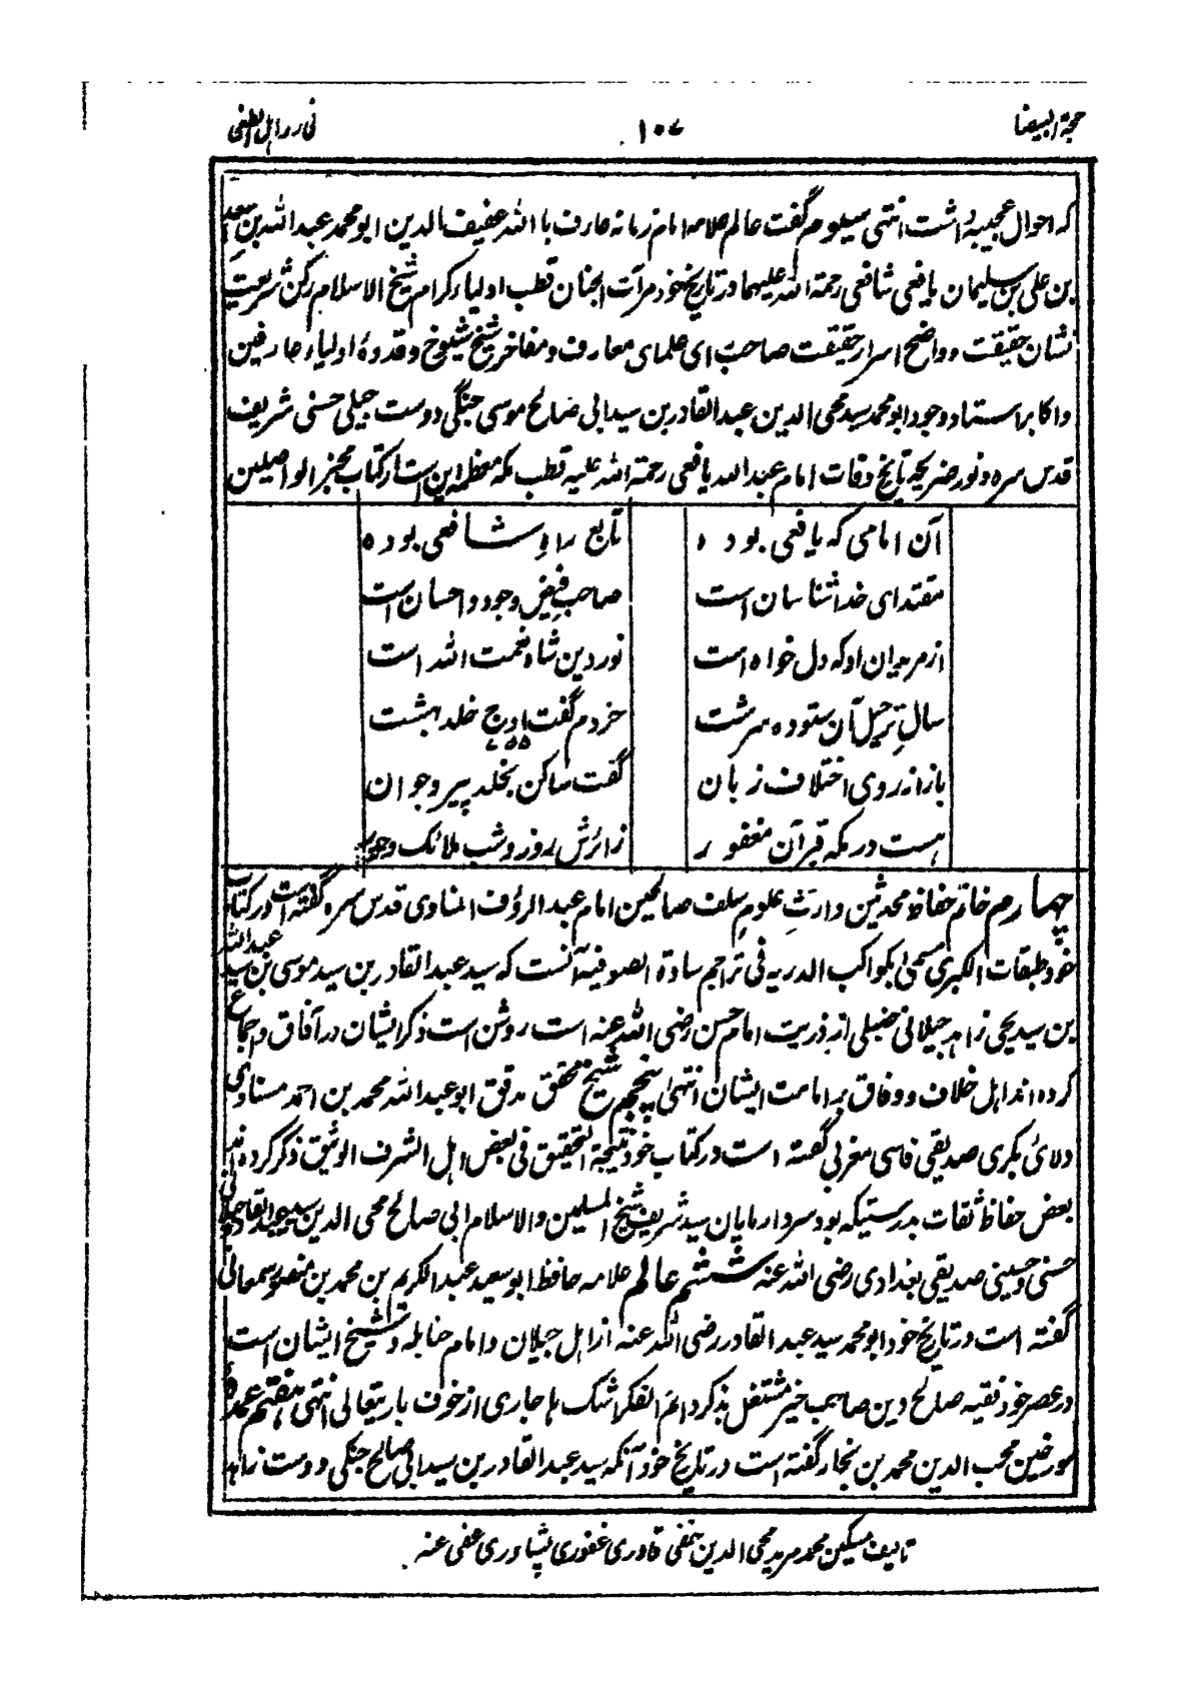 حجة البیضا
۱۰۷
فی رد اہل الطغی
که احوال عجیبه داشت انتهی سیوم گفت عالم علامه امام زمانه عارف با الله عفیف الدین ابو محمد عبد الله بن اسعد
بن علی بن سلیمان یافعی شافعی رحمة الله علیهما در تاریخ خود مرآت الجنان قطب اولیاء کرام شیخ الاسلام رکن شریعت
نشان حقیقت و واضح اسرار حقیقت صاحب ای علمای معارف و مفاخر شیخ شیوخ و قدوۀ اولیاء عارفین
و اکابر استاد وجود ابو محمد سید محی الدین عبد القادر بن سید ابی صالح موسی جنگی دوست جیلی حسنی شریف
قدس سره و نور ضریحه تاریخ وفات امام عبد الله یافعی رحمة الله علیه قطب مکه معظمه این است از کتاب مخبر الواصلین
آن امامی که یافعی بوده تابع راہِ شافعی بوده
مقتدای خدا شناسان است صاحبِ فیض وجود و احسان است
از مریدان او که دل خواه است نور دین شاه نعمت الله است
سالِ ترحیل آن ستوده سرشت خردم گفت اوج خلد بهشت
۷۵۵
باز از روی اختلاف زبان گفت ساکن بخلد پیر و جوان
هست در مکه قبر آن مغفور زائرش روز و شب ملائک و حور
چهارم خاتم حفاظ محدثین وارثِ علومِ سلف صالحین امام عبد الرؤف المناوی قدس سره گفته است در کتاب
خود طبقات الکبری مسمیٰ بکواکب الدریه فی تراجم سادة الصوفیة آنست که سید عبد القادر بن سید موسی بن سید عبد الله
بن سید یحیی زاهد جیلانی حنبلی از ذریت امام حسن رضی الله عنه است روشن است ذکر ایشان در آفاق و اجماع
کرده اند اهل خلاف و وفاق بر امامت ایشان انتهیٰ پنجم شیخ محقق مدقق ابو عبد الله محمد بن احمد مسناوی
دلائی بکری صدیقی فاسی مغربی گفته است در کتاب خود نتیجة التحقیق فی بعض اهل الشرف الوثیق ذکر کرده اند
بعض حفاظ ثقات بدرستیکه بود سردار مایان سید شریف شیخ المسلمین والاسلام ابی صالح محی الدین سید عبد القادر جیلانی
حسنی و حسینی صدیقی بغدادی رضی الله عنه ششم عالم علامه حافظ ابو سعید عبد الکریم بن محمد بن منصور سمعانی
گفته است در تاریخ خود ابو محمد سید عبد القادر رضی الله عنه از اهل جیلان و امام حنابله و شیخ ایشان است
در عصر خود فقیه صالح دین صاحب خیر مشتغل بذکر دائم الفکر اشک ها جاری از خوف باریتعالی انتهی هفتم عمدۀ
مورخین محب الدین محمد بن نجار گفته است در تاریخ خود آنکه سید عبد القادر بن سید ابی صالح جنگی دوست زاهد
تالیف مسکین محمد مرید محی الدین حنفی قادری غفوری پشاوری عفی عنه